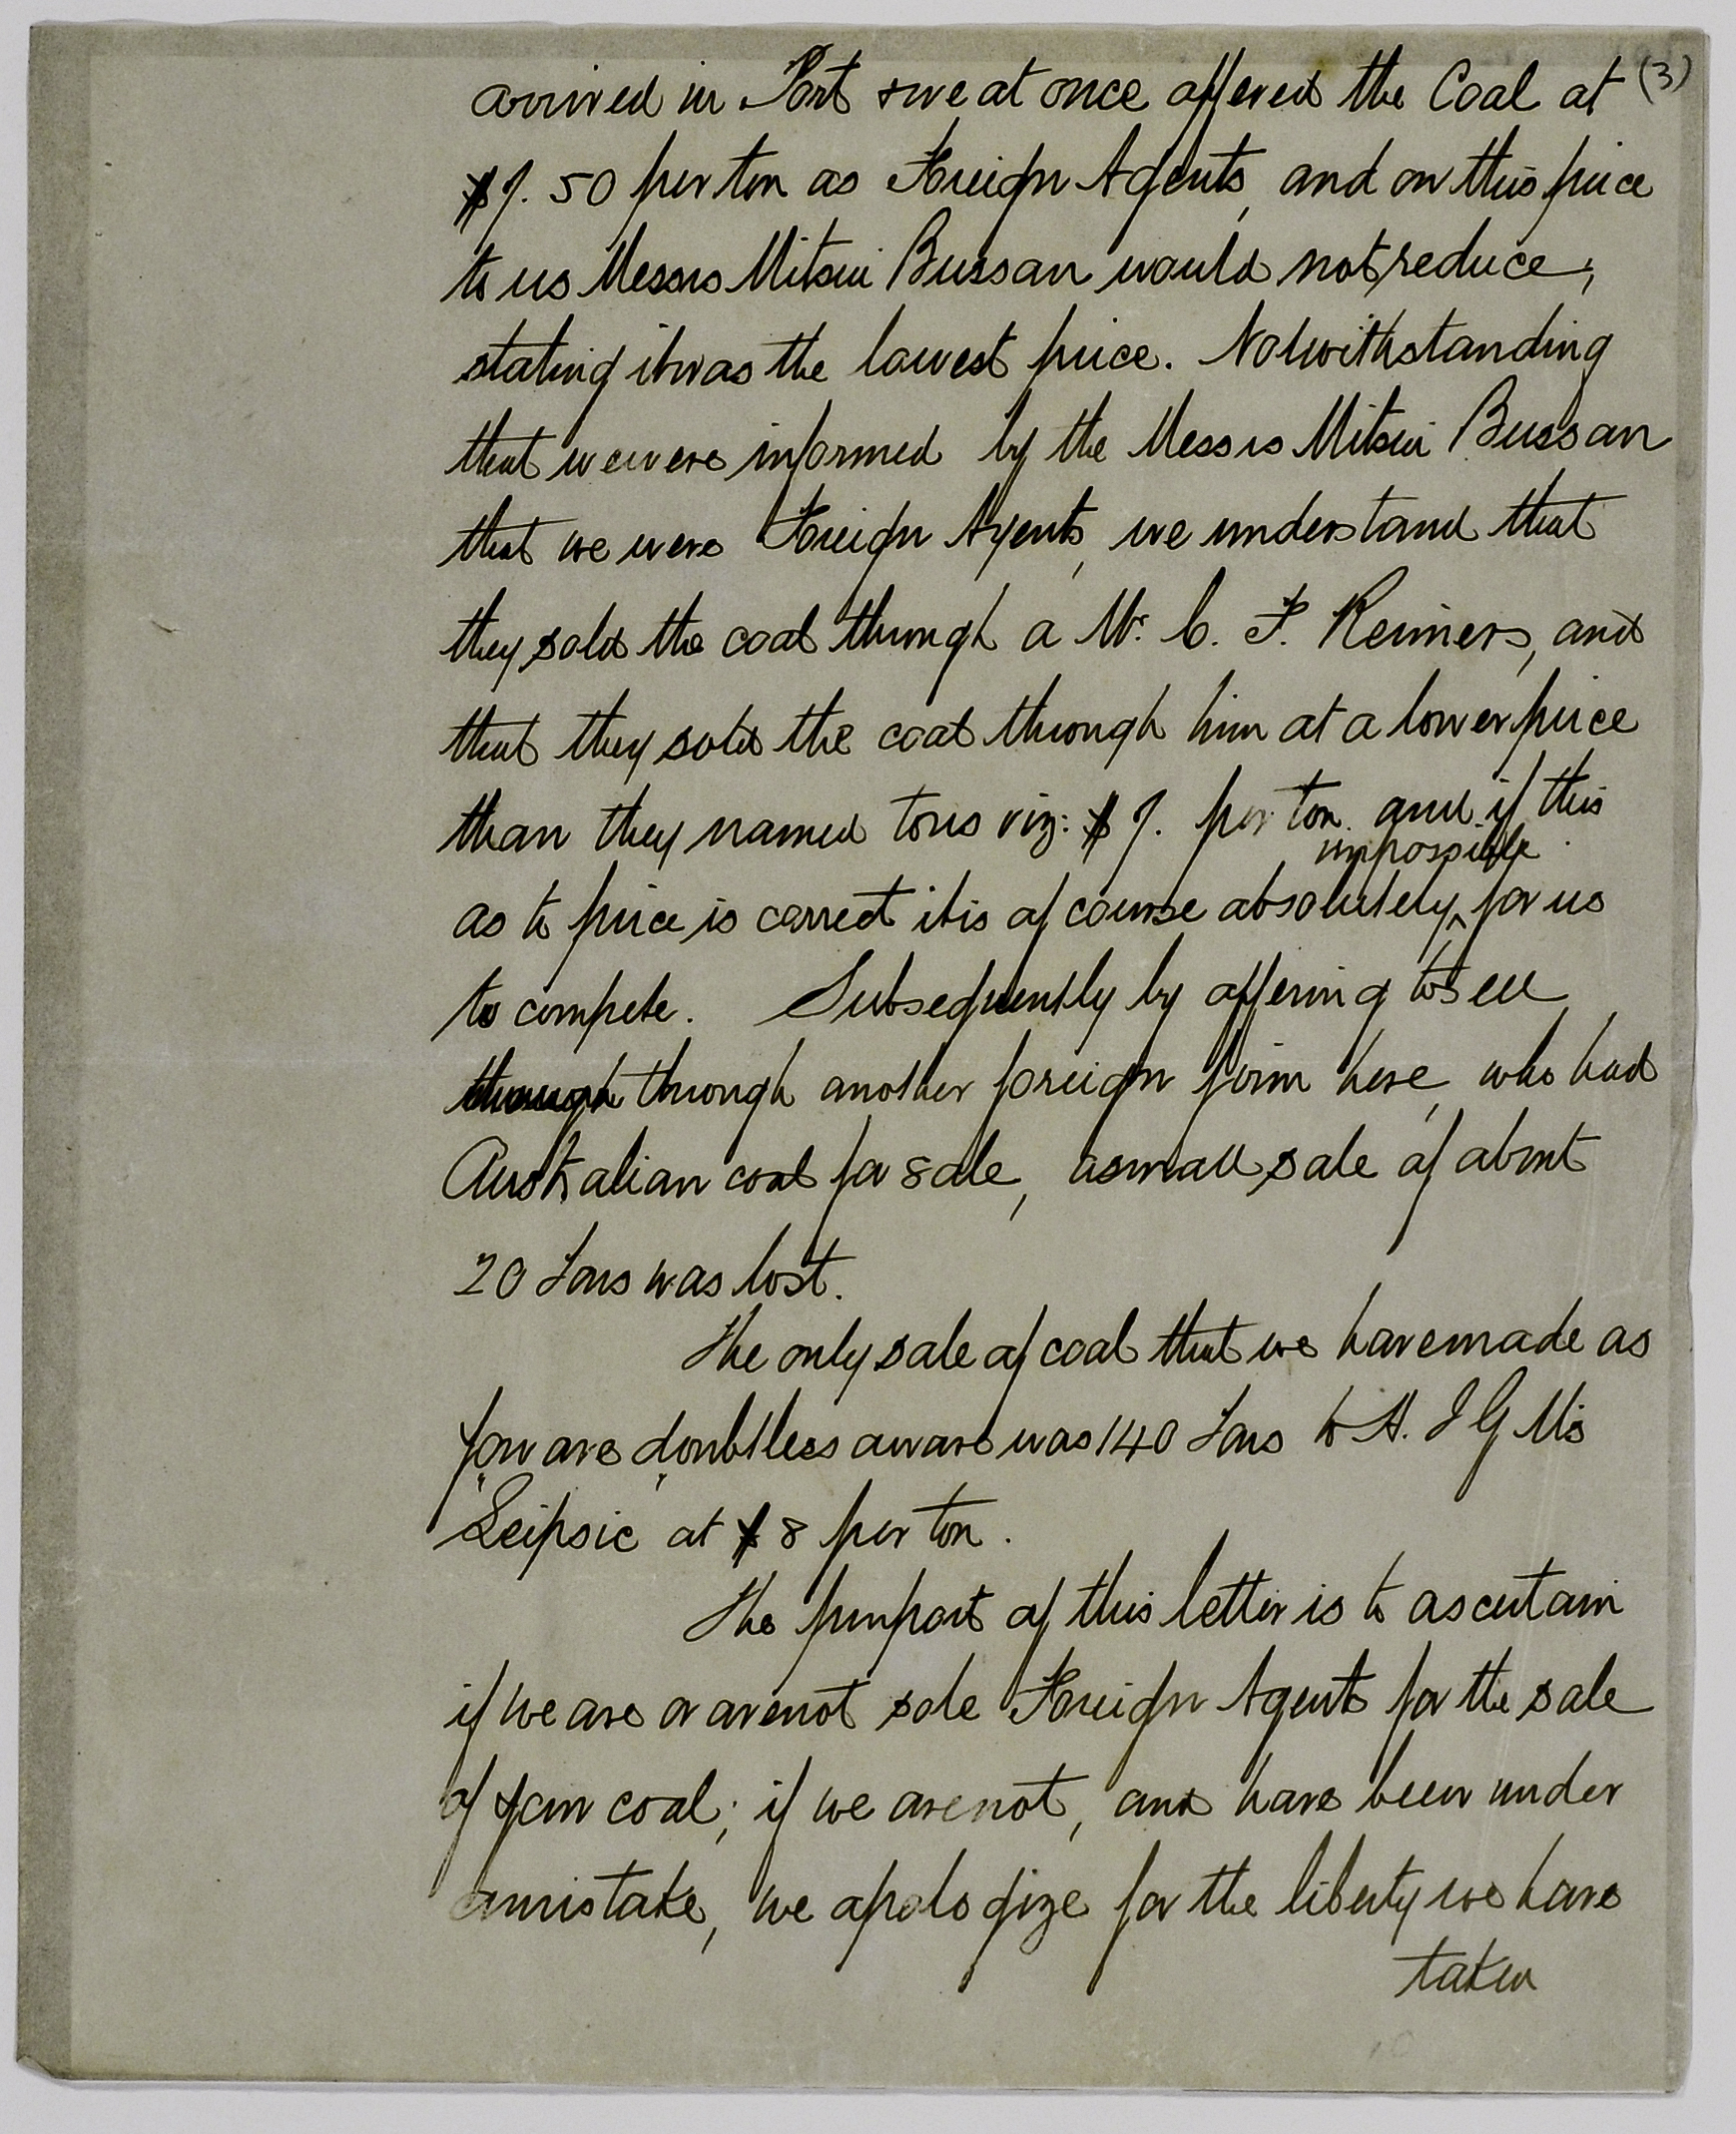 (3)
arrived in Port & we at once offered the Coal at
$7.50 per ton as Foreign Agents, and on this price
to us Messrs Mitsui Bussan would not reduce,
stating it was the lowest price. Notwithstanding
that we were informed by the Messrs Mitsui Bussan
that we were Foreign Agents, we understand that
they sold the coal through a Mr. C. F. Reimers, and
that they sold the coal through him at a lower price
than they named to us viz: $7. per ton. and if this
impossible
as to price is correct it is of course absolutely ^ for us
to compete. Subsequently by offering to sell
through through another foreign firm here, who had
Australian coal for sale, a small sale of about
20 Tons was lost.
The only sale of coal that we have made as
you are doubtless aware was 140 Tons to H. I G M's
"Leipsic" at $8 per ton.
The purport of this letter is to ascertain
if we are or are not sole Foreign Agents for the sale
of your coal; if we are not, and have been under
a mistake, we apologize for the liberty we have
taken